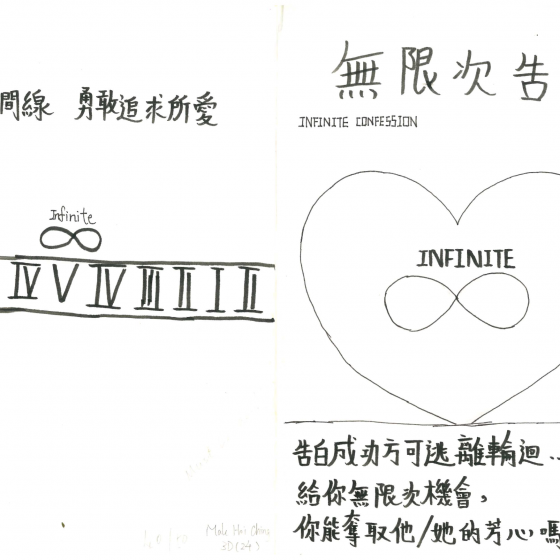 間線 勇敢追求所愛
Infinite
IV V IV III II I II
3D(24)
無限次告
INFINITE CONFESSION
INFINITE
告白成功方可逃離輪迴..
給你無限次機會,
你能奪取他/她的芳心嗎